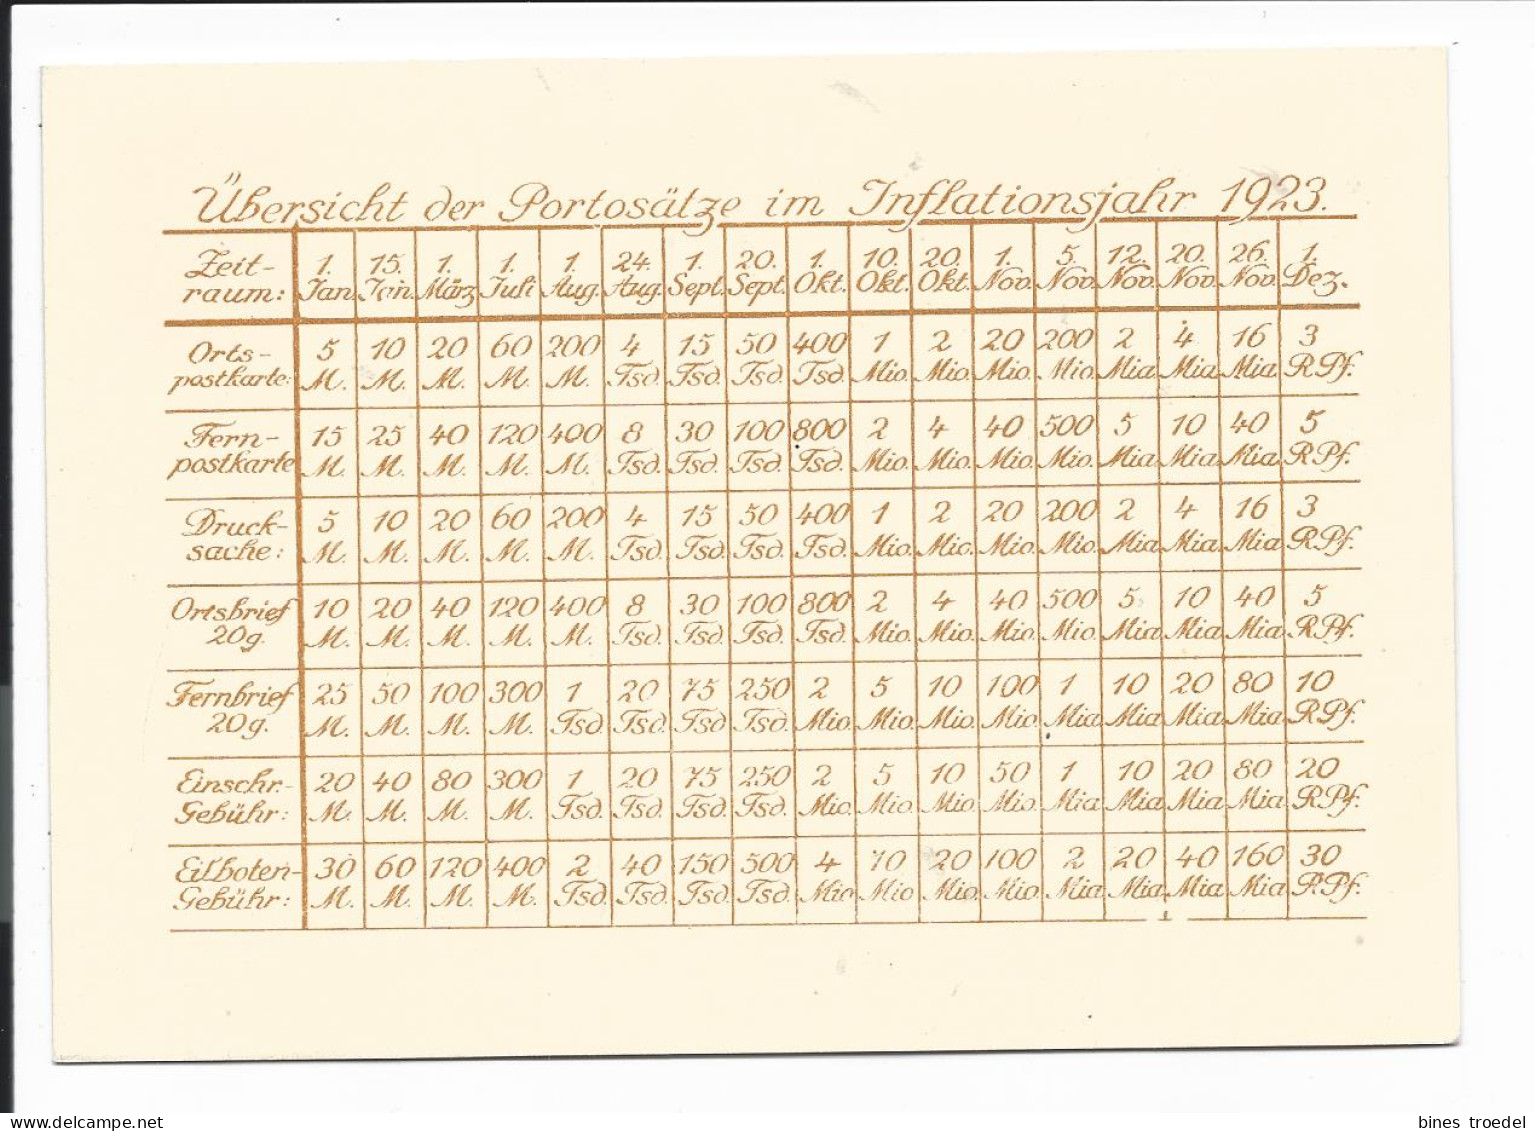 Übersicht der Portosätze im Inflationsjahr 1923.
Zeit- 1. 15. 1. 1. 1. 24. 1. 20. 1. 10. 20. 1. 5. 12. 20. 26. 1.
raum: Jan. Jan. März Juli Aug. Aug. Sept. Sept. Okt. Okt. Okt. Nov. Nov. Nov. Nov. Nov. Dez.
Orts- 5 10 20 60 200 4 15 50 400 1 2 20 200 2 4 16 3
postkarte: M. M. M. M. M. Tsd. Tsd. Tsd. Tsd. Mio. Mio. Mio. Mio. Mia. Mia. Mia. R.Pf.
Fern- 15 25 40 120 400 8 30 100 800 2 4 40 500 5 10 40 5
postkarte M. M. M. M. M. Tsd. Tsd. Tsd. Tsd. Mio. Mio. Mio. Mio. Mia. Mia. Mia. R.Pf.
Druck- 5 10 20 60 200 4 15 50 400 1 2 20 200 2 4 16 3
sache: M. M. M. M. M. Tsd. Tsd. Tsd. Tsd. Mio. Mio. Mio. Mio. Mia. Mia. Mia. R.Pf.
Ortsbrief 10 20 40 120 400 8 30 100 800 2 4 40 500 5 10 40 5
20g. M. M. M. M. M. Tsd. Tsd. Tsd. Tsd. Mio. Mio. Mio. Mio. Mia. Mia. Mia. R.Pf.
Fernbrief 25 50 100 300 1 20 75 250 2 5 10 100 1 10 20 80 10
20g. M. M. M. M. Tsd. Tsd. Tsd. Tsd. Mio. Mio. Mio. Mio. Mia. Mia. Mia. Mia. R.Pf.
Einschr.- 20 40 80 300 1 20 75 250 2 5 10 50 1 10 20 80 20
Gebühr: M. M. M. M. Tsd. Tsd. Tsd. Tsd. Mio. Mio. Mio. Mio. Mia. Mia. Mia. Mia. R.Pf.
Eilboten- 30 60 120 400 2 40 150 500 4 10 20 100 2 20 40 160 30
Gebühr: M. M. M. M. Tsd. Tsd. Tsd. Tsd. Mio. Mio. Mio. Mio. Mia. Mia. Mia. Mia. R.Pf.
bines_troedel